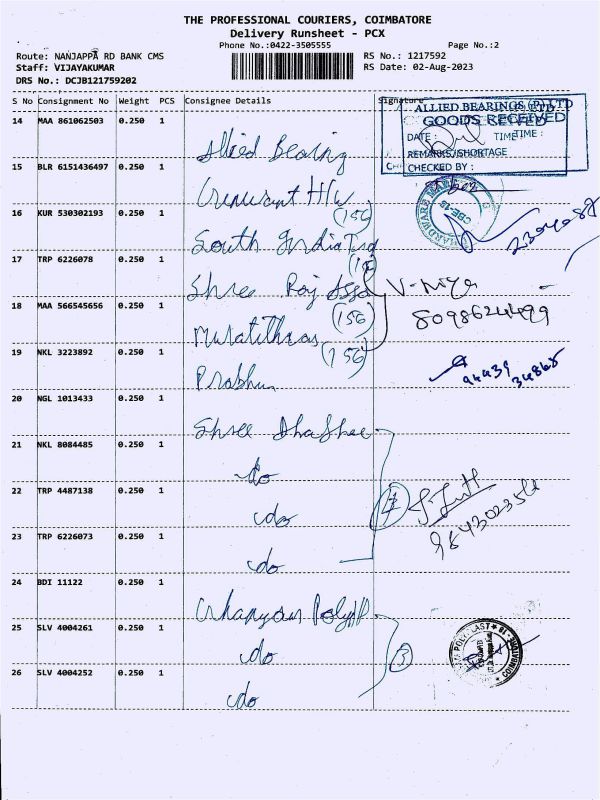 THE PROFESSIONAL COURIERS, COIMBATORE
Delivery Runsheet - PCX
Phone No.:0422-3505555 Page No.:2
Route: NANJAPPA RD BANK CMS RS No.: 1217592
Staff: VIJAYAKUMAR RS Date: 02-Aug-2023
DRS No.: DCJB121759202
S No Consignment No Weight PCS Consignee Details Signature
ALLIED BEARINGS (P) LTD
GOODS RECEIVED
DATE : TIME :
REMARKS/SHORTAGE
CHECKED BY :
14 MAA 861062503 0.250 1 Allied Bearing
15 BLR 6151436497 0.250 1 H/W
HARDWARE CBE-18
16 KUR 530302193 0.250 1 South India
(156)
17 TRP 6226078 0.250 1 Shree Raj
18 MAA 566545656 0.250 1
(156)
8098624499
19 NKL 3223892 0.250 1 Prabhu
(156)
94439 34868
20 NGL 1013433 0.250 1 Shree
21 NKL 8084485 0.250 1 do
22 TRP 4487138 0.250 1 do
23 TRP 6226073 0.250 1 do
24 BDI 11122 0.250 1
25 SLV 4004261 0.250 1 do
3
COIMBATORE - 18
26 SLV 4004252 0.250 1 do